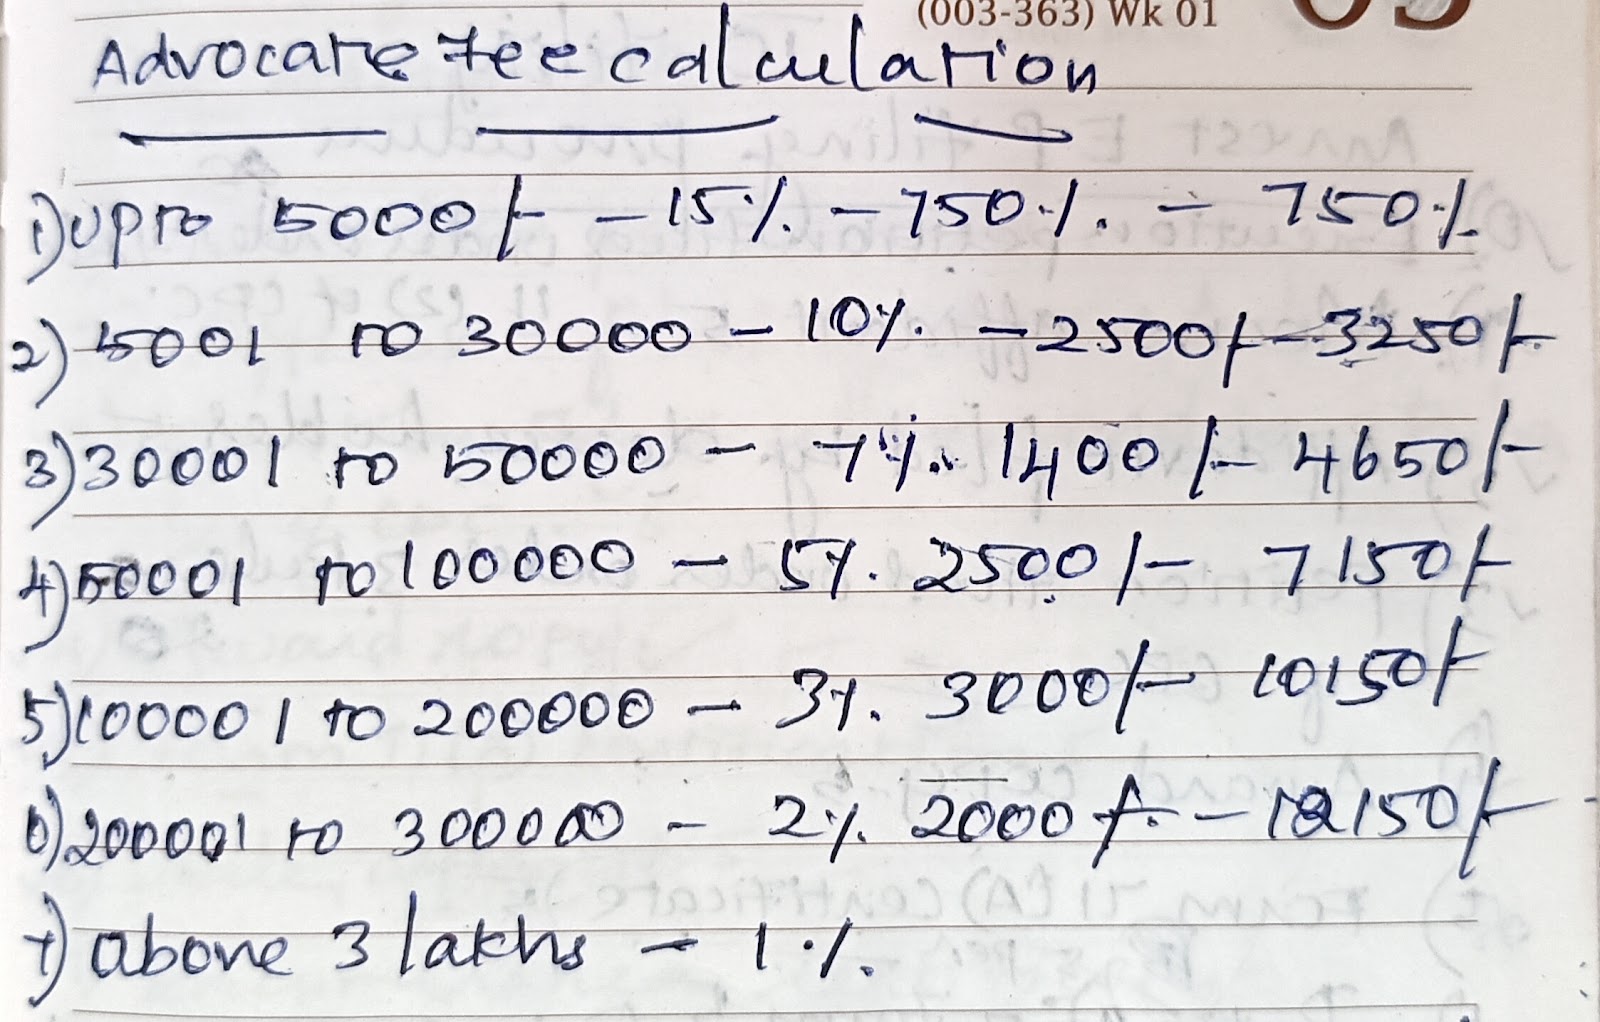 (003-363) Wk 01
Advocate fee calculation
1) upto 5000/- - 15% - 750 ·/. - 750 ·/.
2) 5001 to 30000 - 10% - 2500/- 3250/-
3) 30001 to 50000 - 7% 1400/- 4650/-
4) 50001 to 100000 - 5% 2500/- 7150/-
5) 100001 to 200000 - 3% 3000/- 10150/-
6) 200001 to 300000 - 2% 2000/- - 12150/-
7) above 3 lakhs - 1%